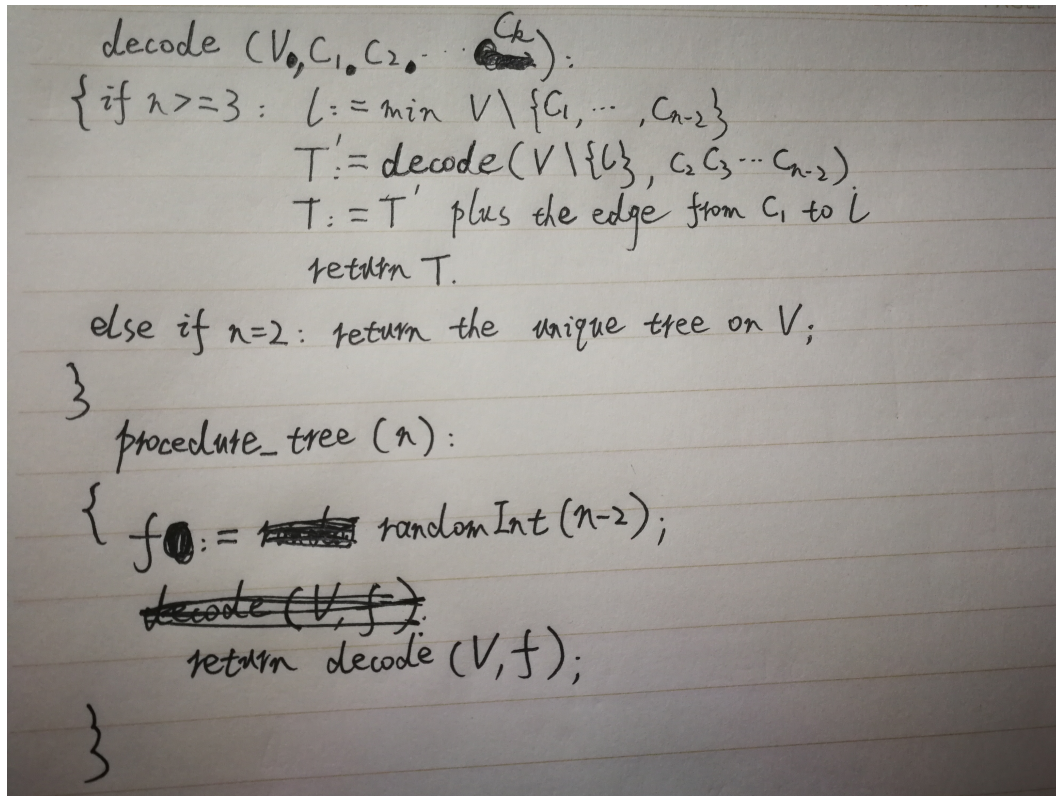 decode (V, C₁, C₂, ... Cₖ):
{ if n>=3: l := min V \ {C₁, ... , Cₙ₋₂}
T' := decode(V \ {l}, C₂ C₃ ... Cₙ₋₂)
T := T' plus the edge from C₁ to l
return T.
else if n=2: return the unique tree on V;
}
procedure_tree (n):
{ f := randomInt (n-2);
decode (V, f);
return decode (V, f);
}